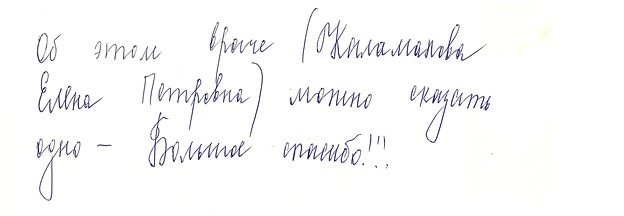 Об этом враче (
Елена Петровна) можно сказать
одно - Большое спасибо!!!